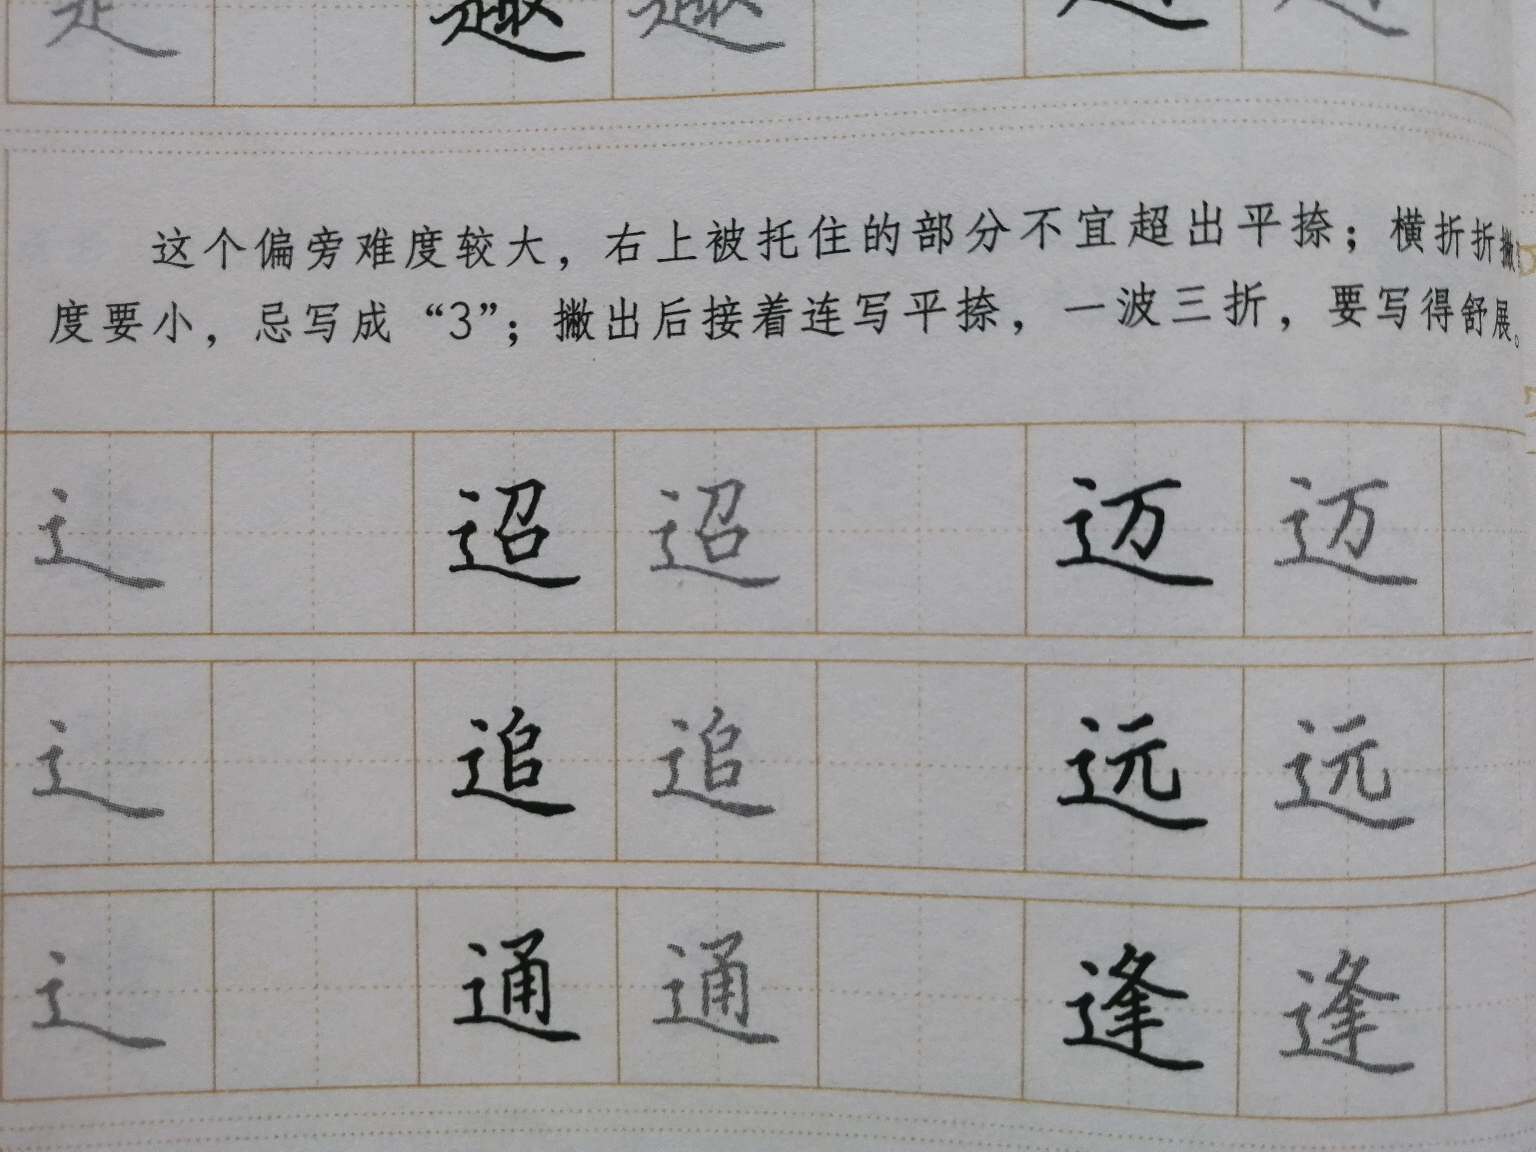 趣 趣
这个偏旁难度较大，右上被托住的部分不宜超出平捺；横折折撇
度要小，忌写成“3”；撇出后接着连写平捺，一波三折，要写得舒展。
辶 迢 迢 迈 迈
辶 追 追 远 远
辶 通 通 逢 逢